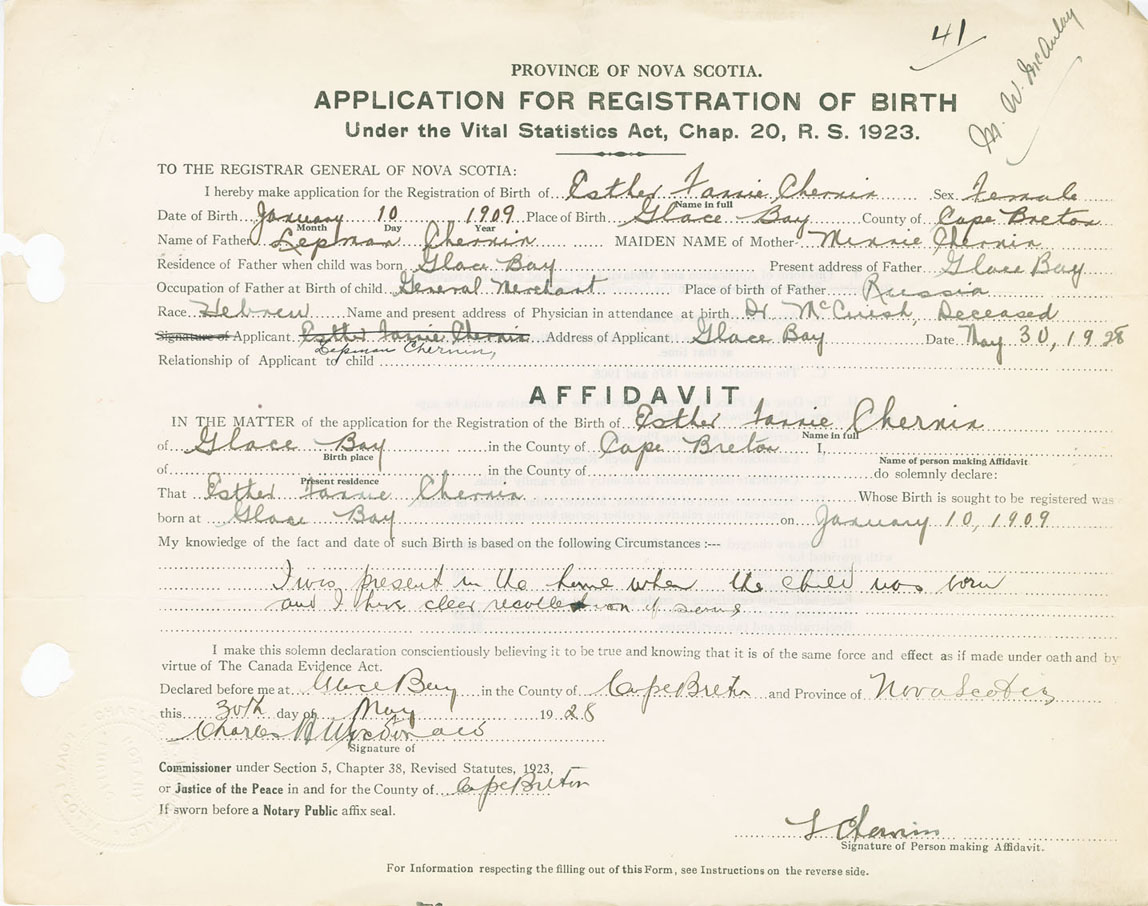 41
M. W. McAulay
PROVINCE OF NOVA SCOTIA.
APPLICATION FOR REGISTRATION OF BIRTH
Under the Vital Statistics Act, Chap. 20, R. S. 1923.
TO THE REGISTRAR GENERAL OF NOVA SCOTIA:
I hereby make application for the Registration of Birth of Esther Fannie Chernin Sex Female
Name in full
Date of Birth January 10 1909 Place of Birth Glace Bay County of Cape Breton
Month Day Year
Name of Father Lepman Chernin MAIDEN NAME of Mother Minnie Chernin
Residence of Father when child was born Glace Bay Present address of Father Glace Bay
Occupation of Father at Birth of child General Merchant Place of birth of Father Russia
Race Hebrew Name and present address of Physician in attendance at birth Dr. McCuish, Deceased
Signature of Applicant Esther Fannie Chernin Address of Applicant Glace Bay Date May 30, 1928
Lepman Chernin,
Relationship of Applicant to child
AFFIDAVIT
IN THE MATTER of the application for the Registration of the Birth of Esther Fannie Chernin
Name in full
of Glace Bay in the County of Cape Breton I,
Birth place Name of person making Affidavit
of in the County of do solemnly declare:
Present residence
That Esther Fannie Chernin Whose Birth is sought to be registered was
born at Glace Bay on January 10, 1909
My knowledge of the fact and date of such Birth is based on the following Circumstances :---
I was present in the home when the child was born
and I have clear recollection of same
I make this solemn declaration conscientiously believing it to be true and knowing that it is of the same force and effect as if made under oath and by
virtue of The Canada Evidence Act.
Declared before me at Glace Bay in the County of Cape Breton and Province of Nova Scotia,
this 30th day of May 1928
Charles Macdonald
Signature of
Commissioner under Section 5, Chapter 38, Revised Statutes, 1923,
or Justice of the Peace in and for the County of Cape Breton
If sworn before a Notary Public affix seal.
L Chernin
Signature of Person making Affidavit.
For Information respecting the filling out of this Form, see Instructions on the reverse side.